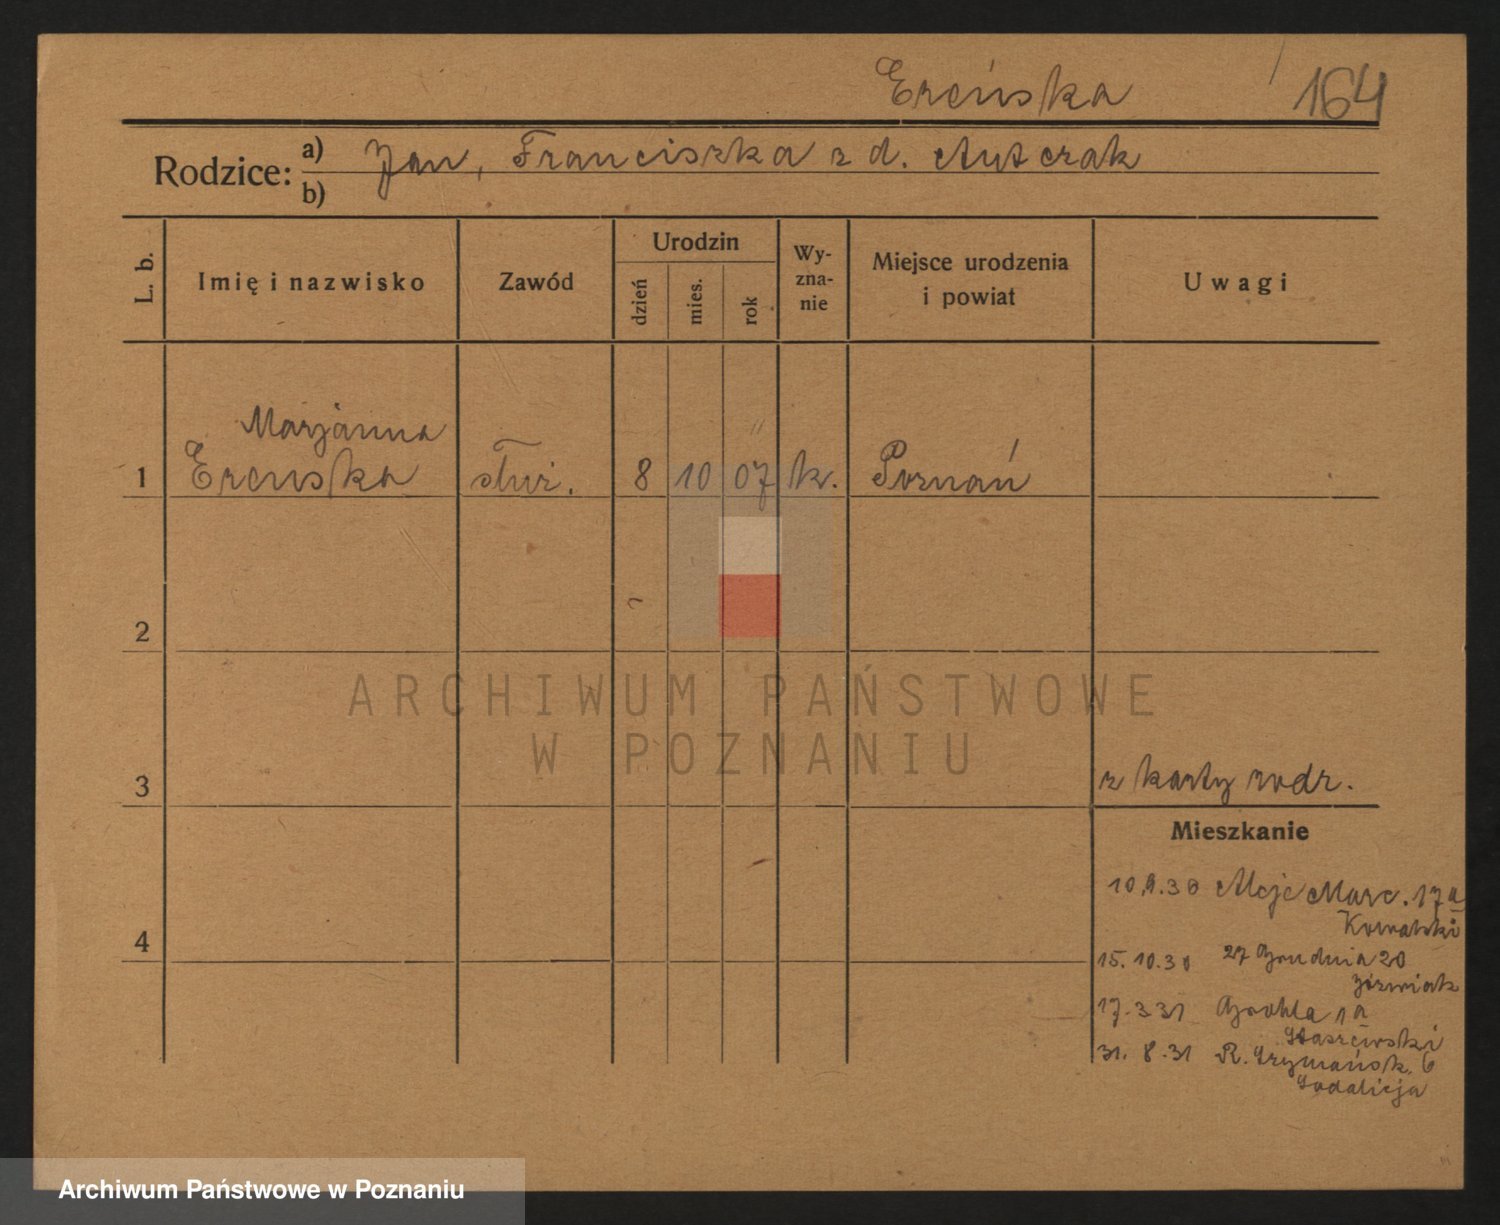 Ereńska 164
Rodzice: a) Jan, Franciszka z d. Antczak
b)
L. b.
Imię i nazwisko
Zawód
Urodzin
dzień
mies.
rok
Wy-
zna-
nie
Miejsce urodzenia
i powiat
Uwagi
Marjanna
1 Erenska służ. 8 10 07 k. Poznań
2
ARCHIWUM PAŃSTWOWE
W POZNANIU
3 z karty rodz.
Mieszkanie
10.9.30 Aleje Marc. 17a
Kowalski
4
15.10.30 27 Grudnia 20
Jóźwiak
17.3.31 Grobla 1a
Staszewski
31.8.31 R. Szymańsk. 6
Sodalicja
Archiwum Państwowe w Poznaniu